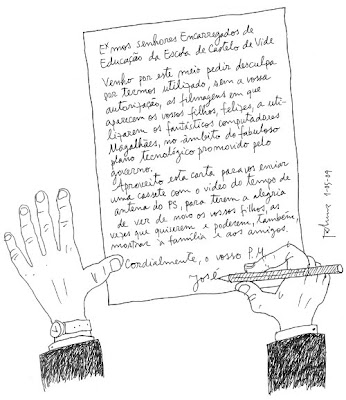 Exmos senhores Encarregados de
Educação da Escola de Castelo de Vide
Venho por este meio pedir desculpa
por termos utilizado, sem a vossa
autorização, as filmagens em que
aparecem os vossos filhos, felizes, a uti-
lizarem os fantásticos computadores
Magalhães, no âmbito do fabuloso
plano tecnológico promovido pelo
governo.
Aproveito esta carta para vos enviar
uma cassete com o video do tempo de
antena do PS, para terem a alegria
de ver de novo os vossos filhos, as
vezes que quiserem e poderem, também,
mostrar à família e aos amigos.
Cordialmente, o vosso P.M
José